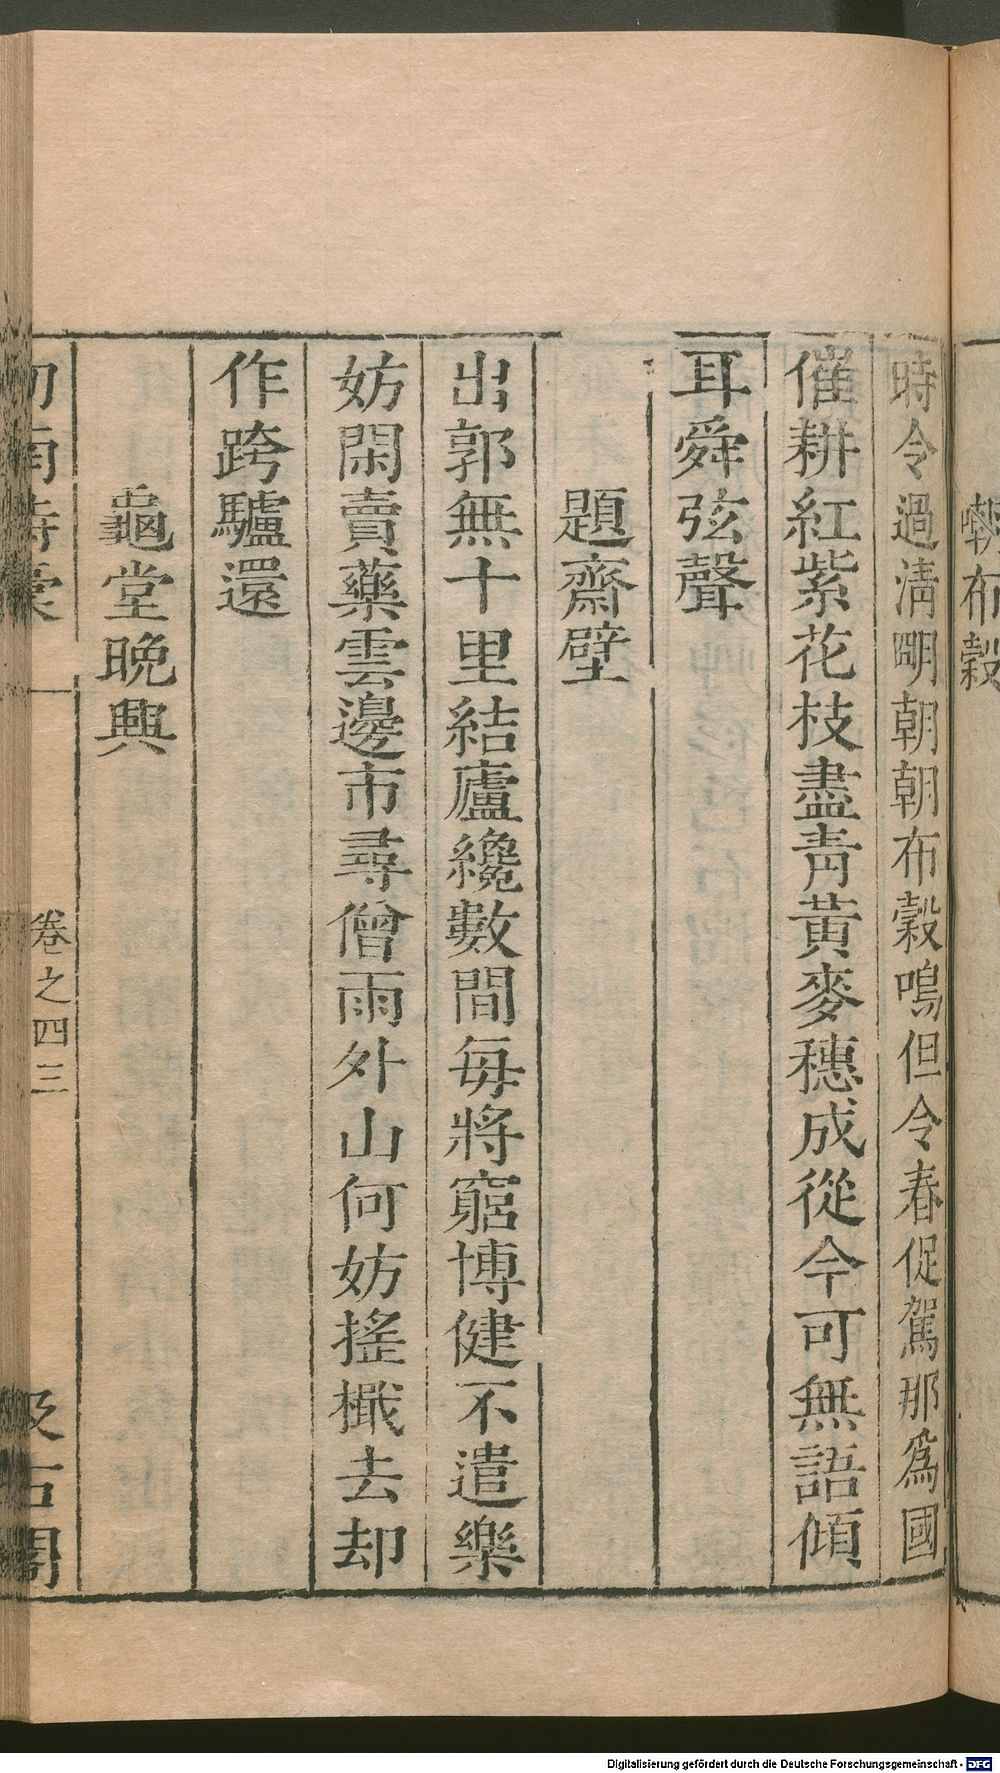 布穀
時令過淸明朝朝布穀鳴但令春促駕那爲國
催耕紅紫花枝盡靑黃麥穗成從今可無語傾
耳舜弦聲
題齋壁
出郭無十里結廬纔數間每將窮博健不遣樂
妨閑賣藥雲邊市尋僧雨外山何妨搖檝去却
作跨驢還
龜堂晚興
卷之四三
汲古閣
Digitalisierung gefördert durch die Deutsche Forschungsgemeinschaft - DFG